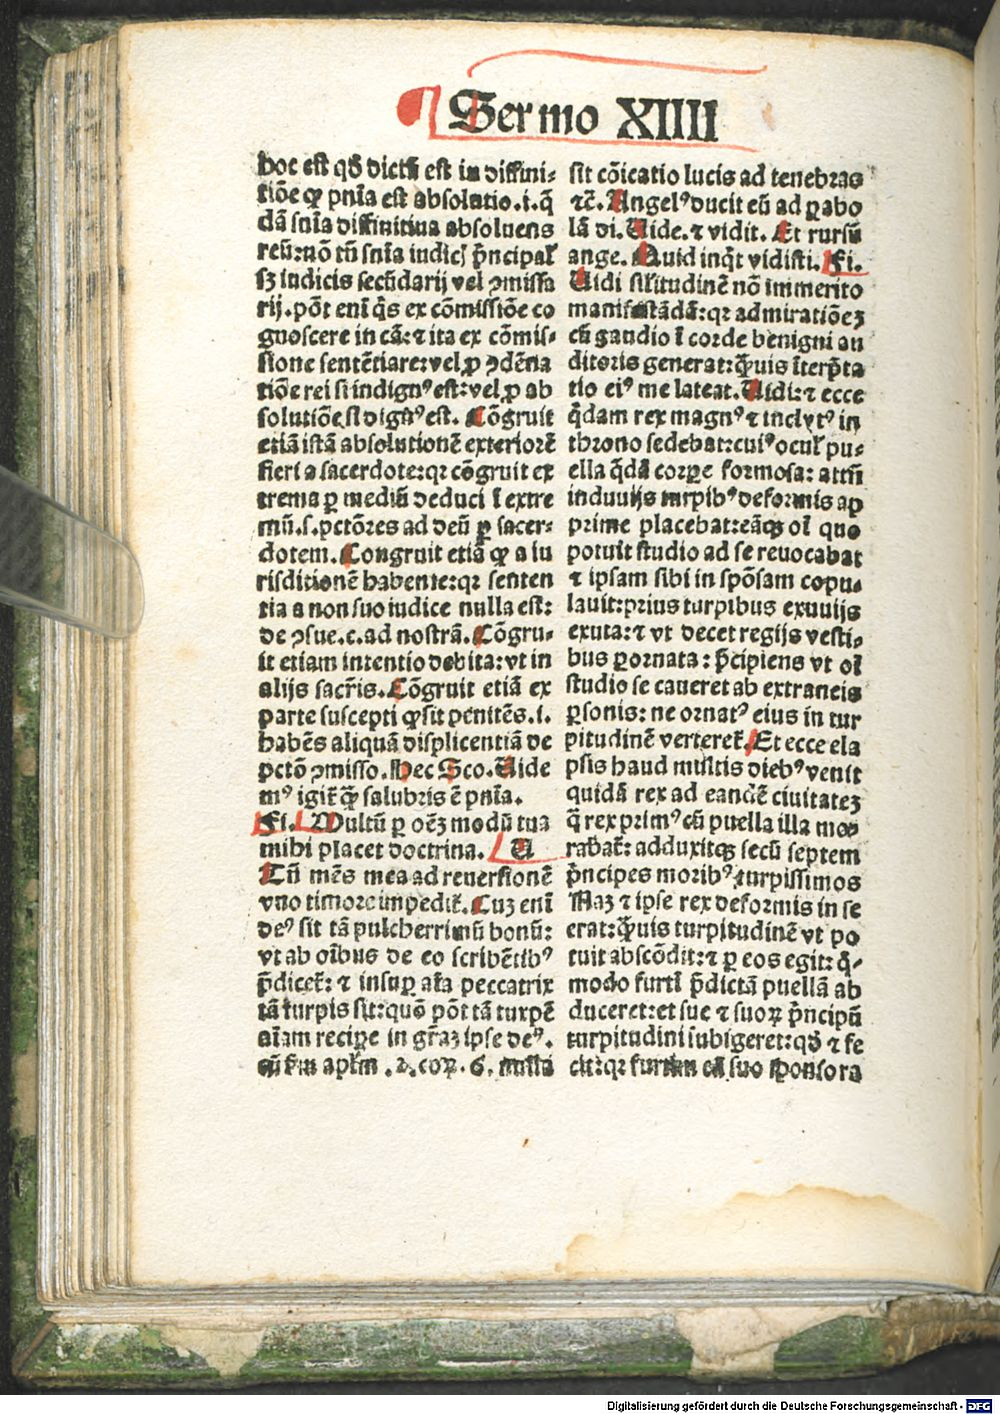 Sermo XIIII
hoc est qď dictũ est in diffini-
tiõe ꝙ pnĩa est absolutio.i.q̃
dã snĩa diffinitiua absoluens
reũ: nõ tñ snĩa iudicꝭ p̃ncipal̃
sꝫ iudicis secũdarij vel ꝯmissa
rij. põt eni q̃s ex cõmissiõe co
gnoscere in cã: ⁊ ita ex cõmis-
sione sentẽtiare: vel ꝓ ꝯdẽna
tiõe rei si indignꝰ est: vel ꝓ ab
solutiõe si dignꝰ est. Cõgruit
etiã istã absolutionẽ exteriorẽ
fieri a sacerdote: qꝛ cõgruit ex
trema ꝑ mediũ deduci ĩ extre
mũ. s. pctõres ad deũ ꝑ sacer-
dotem. Congruit etiã ꝙ a iu
risditionẽ habente: qꝛ senten
tia a non suo iudice nulla est:
de ꝯsue. c. ad nostrã. Cõgru-
it etiam intentio debita: vt in
alijs sacr̃is. Cõgruit etiã ex
parte suscepti ꝙ sit penitẽs. i.
habẽs aliquã displicentiã de
pctõ ꝯmisso. Hec Sco. Uide
mꝰ igit̃ ꝙ̃ salubris ẽ pnĩa.
Fi. Multũ ꝑ oẽꝫ modũ tua
mihi placet doctrina. U
Tñ mẽs mea ad reuersionẽ
vno timore impedit̃. Cuꝫ eni
deꝰ sit tã pulcherrimũ bonũ:
vt ab oĩbus de eo scribẽtibꝰ
p̃dicet̃: ⁊ insuꝑ aĩa peccatrix
tã turpis sit: quõ põt tã turpẽ
aĩam reciꝑe in grãꝫ ipse deꝰ.
cũ s̃m apl̃m .2. coꝝ. 6. nulla
sit cõicatio lucis ad tenebras
⁊c̃. Angelꝰ ducit eũ ad ꝑabo
lã di. Uide. ⁊ vidit. Et rursũ
ange. Quid inq̃t vidisti. Fi.
Uidi sil̃itudinẽ nõ immerito
manifestãdã: qꝛ admiratiõeꝫ
cũ gaudio ĩ corde benigni au
ditoris generat: ꝙ̃uis ĩterp̃ta
tio eiꝰ me lateat. Uidi: ⁊ ecce
q̃dam rex magnꝰ ⁊ inclytꝰ in
throno sedebat: cuiꝰ ocul̃ pu-
ella q̃dã corꝑe formosa: attñ
induuijs turpibꝰ deformis ap
prime placebat: eãqꝫ oĩ quo
potuit studio ad se reuocabat
⁊ ipsam sibi in spõsam copu-
lauit: prius turpibus exuuijs
exuta: ⁊ vt decet regijs vesti-
bus ꝑornata: p̃cipiens vt oĩ
studio se caueret ab extraneis
ꝑsonis: ne ornatꝰ eius in tur
pitudinẽ verteret̃. Et ecce ela
psis haud multis diebꝰ venit
quidã rex ad eandẽ ciuitateꝫ
q̃ rex primꝰ cũ puella illa mo-
rabat̃: adduxitqꝫ secũ septem
p̃ncipes moribꝰ turpissimos
Naꝫ ⁊ ipse rex deformis in se
erat: ꝙ̃uis turpitudinẽ vt po
tuit abscõdit: ⁊ ꝑ eos egit: q̃-
modo furtĩ p̃dictã puellã ab
duceret: et sue ⁊ suoꝝ p̃ncipũ
turpitudini subigeret: qď ⁊ fe
cit: qꝛ furtim eã suo sponso ra
Digitalisierung gefördert durch die Deutsche Forschungsgemeinschaft - DFG